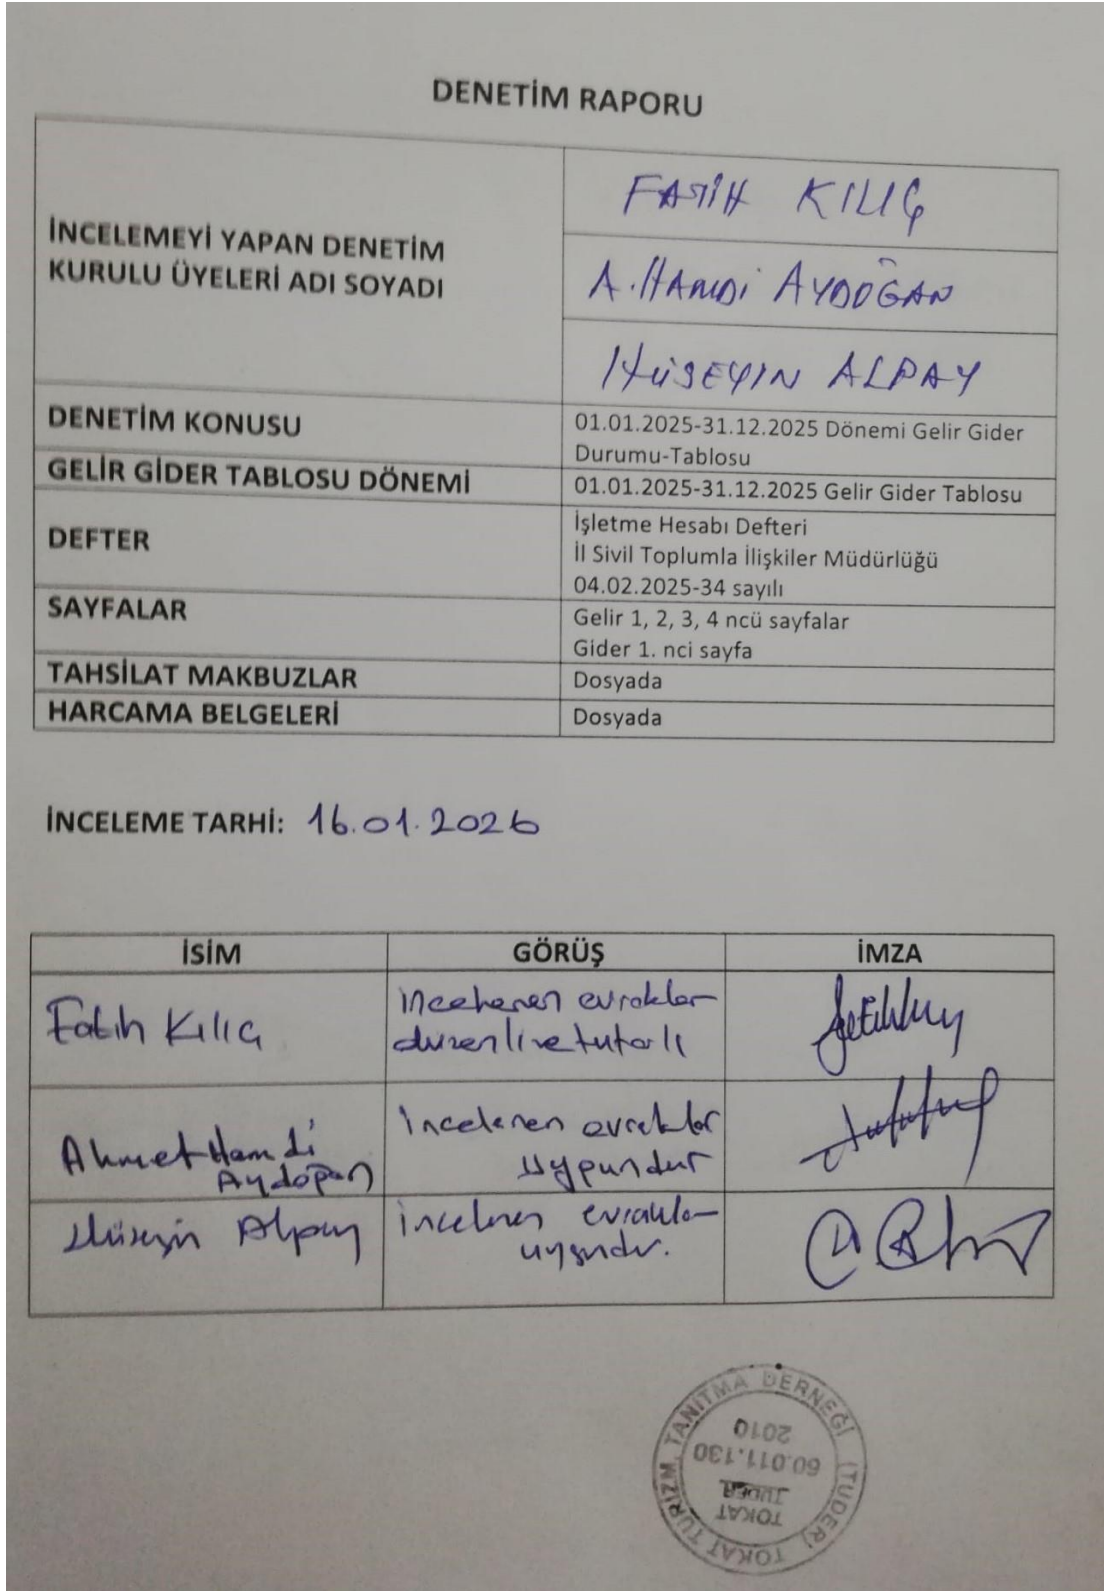 DENETİM RAPORU
İNCELEMEYİ YAPAN DENETİM
KURULU ÜYELERİ ADI SOYADI
FATİH KILIÇ
A.HAMDİ AYDOĞAN
HÜSEYIN ALPAY
DENETİM KONUSU
01.01.2025-31.12.2025 Dönemi Gelir Gider
Durumu-Tablosu
GELİR GİDER TABLOSU DÖNEMİ
01.01.2025-31.12.2025 Gelir Gider Tablosu
DEFTER
İşletme Hesabı Defteri
İl Sivil Toplumla İlişkiler Müdürlüğü
04.02.2025-34 sayılı
SAYFALAR
Gelir 1, 2, 3, 4 ncü sayfalar
Gider 1. nci sayfa
TAHSİLAT MAKBUZLAR
Dosyada
HARCAMA BELGELERİ
Dosyada
İNCELEME TARHİ: 16.01.2026
İSİM GÖRÜŞ İMZA
Fatih Kılıç
incelenen evraklar
düzenli ve tutarlı
Ahmet Hamdi
Aydoğan
incelenen evraklar
uygundur
Hüseyin Alpay
incelenen evrakla
uygundur.
TOKAT TURİZM TANITMA DERNEĞİ (TUDER)
TOKAT
TUDER
60.011.130
2010